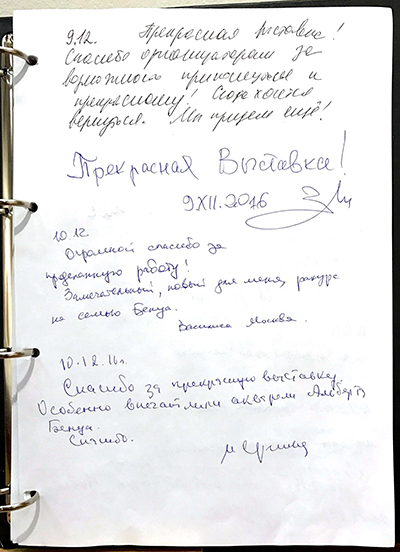 9.12. Прекрасная выставка!
Спасибо организаторам за
возможность прикоснуться к
прекрасному! Сюда хочется
вернуться. Мы придем ещё!
Прекрасная Выставка!
9 XII. 2016
10.12
Огромное спасибо за
проделанную работу!
Замечательный, новый для меня, ракурс
на семью Бенуа.
Василиса Москва.
10.12.16г.
Спасибо за прекрасную выставку.
Особенно впечатлили акварели Альберта
Бенуа.
Спасибо.